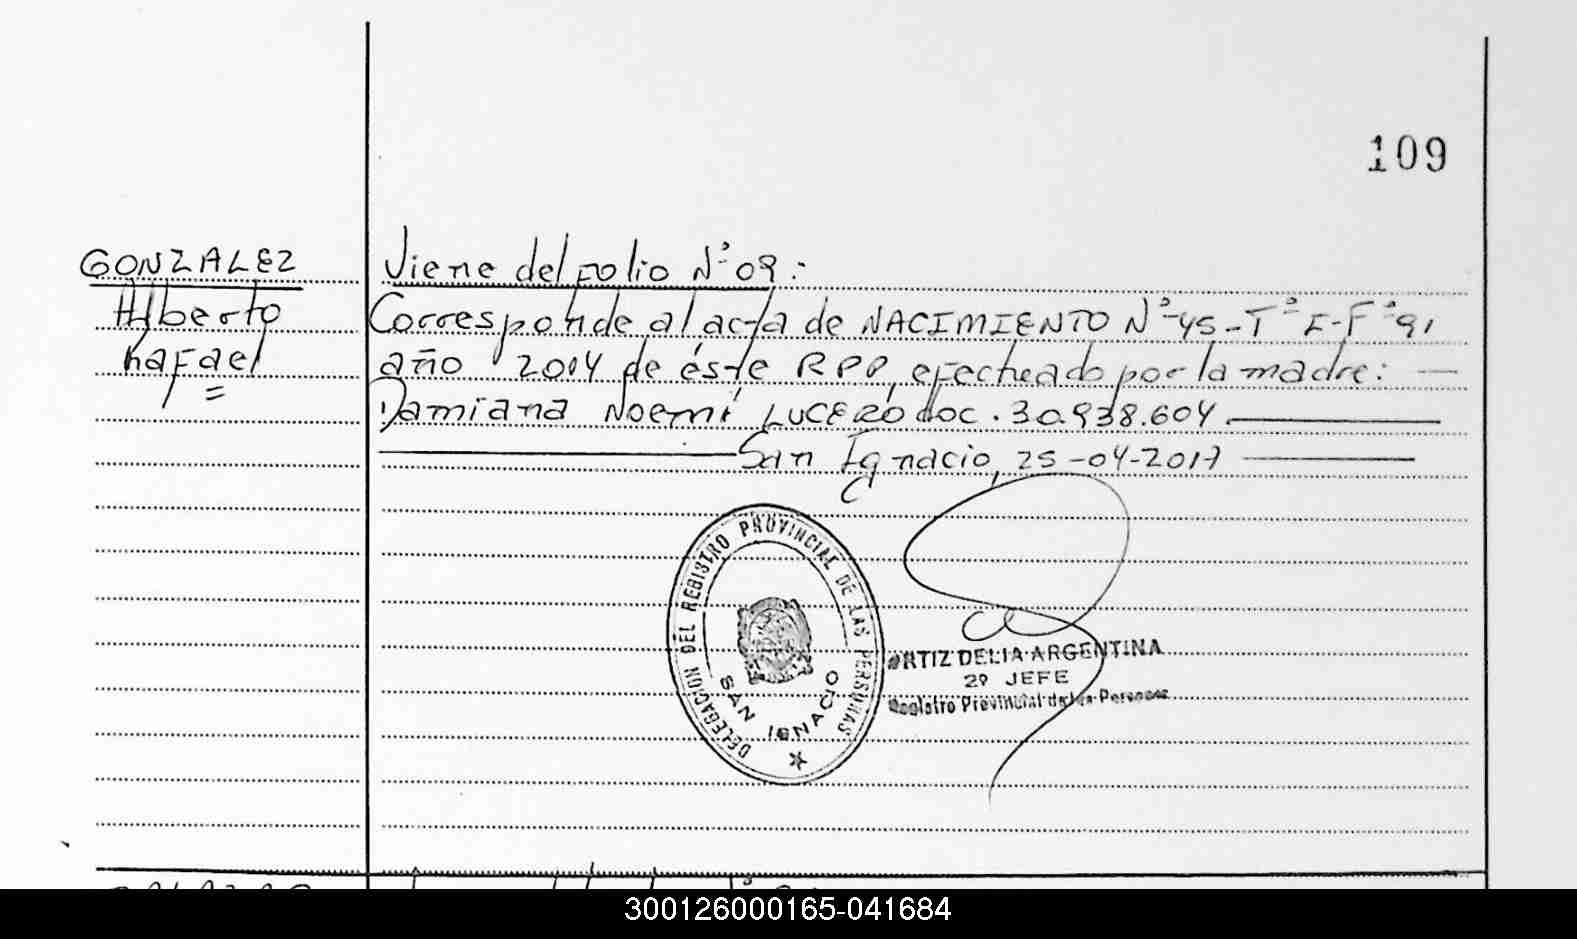 109
GONZALEZ
Alberto
Rafael
Viene del folio N° 09:
Corresponde al acta de NACIMIENTO N°-45-T° I-F° 91
año 2014 de éste RPP, efecheado por la madre:
Damiana Noemí LUCERO doc. 30.938.604
San Ignacio, 25-04-2017
DELEGACION DEL REGISTRO PROVINCIAL DE LAS PERSONAS
SAN IGNACIO
ORTIZ DELIA ARGENTINA
2º JEFE
Registro Provincial de las Personas
300126000165-041684